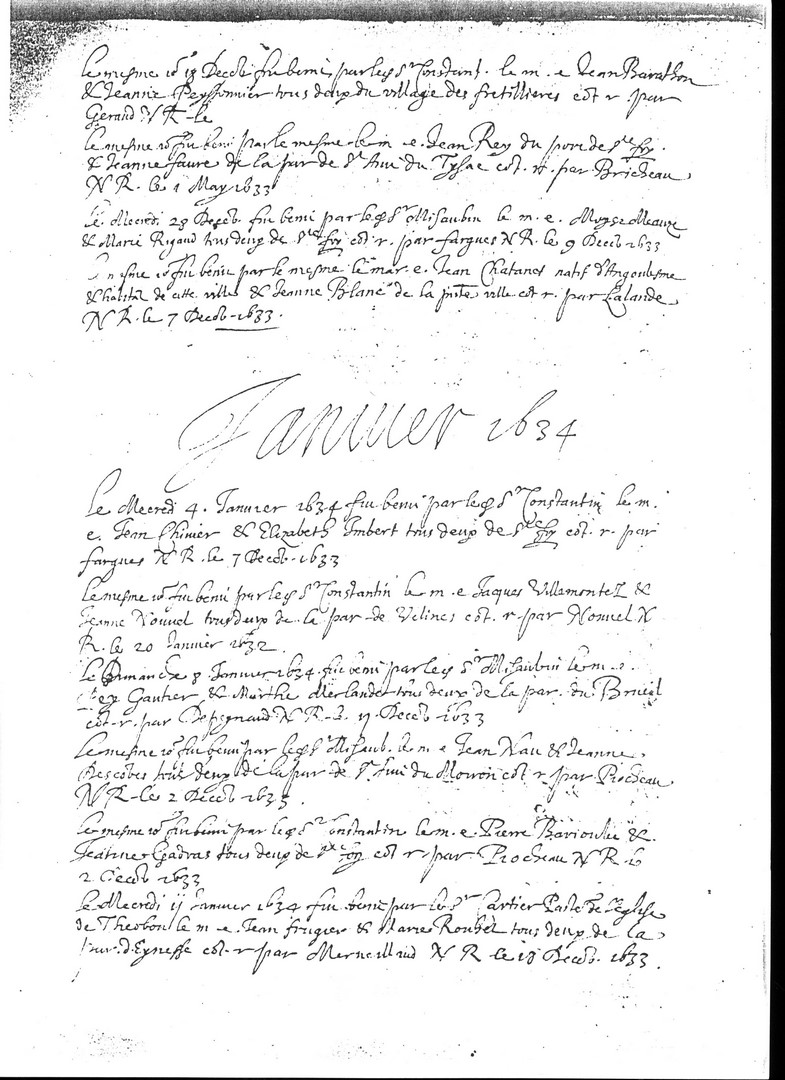 Le mesme io.r 18 Decēb. fut beni par le s.r Constant. le m. e Jean Barathon
& Jeanne Peyssonnier tous deux du village des fretillieres cōt. r. par
Geraud N R. le
Le mesme io.r fut beni par le mesme le m. e. Jean Rey du port de S.te foy.
& Jeanne faure de la par de S.t Avi du Tysac cōt. r. par Bricheau
N R. le 1 May 1633
Le Mecredi 28 Decēb. fut beni par le s.r Misaubin le m. e. Moyse Meaux
& Marie Rigaud tous deux de S.te foy cōt. r. par fargues N R. le 9 Decēb 1633
Le mesme io.r fut beni par le mesme le mar. e. Jean Chatanes natif d'Angoulesme
& habităt de cette ville & Jeanne Blanc de la p̄nte ville cōt. r. par Lalande
N R. le 7 Decēb. 1633.
Januier 1634
Le Mecredi 4. Januier 1634 fut beni par le s.r Constantin le m.
e. Jean Chinier & Elizabeth Imbert tous deux de S.te foy cōt. r. par
fargues N R. le 7 Decēb. 1633
Le mesme io.r fut beni par le s.r Constantin le m. e Jacques Villamontel &
Jeanne Nouvel tous deux de la par. de Velines cōt. r. par Nouvel N
R. le 20 Januier 1632.
Le Dimanche 8. Januier 1634. fut beni par le s.r Misaubin le m. e.
Gautier & Marthe Merlande tous deux de la par. du Brueil
cōt. r. par N R. le Decēb 1633
Le mesme io.r fut beni par le s.r Misaub. le m e Jean Nau & Jeanne
Descobes tous deux de la par de S.t Avi du Moiron cōt r. par Piocheau
N R. le 2 Decēb 1633.
Le mesme io.r fut beni par le s.r Constantin le m. e. Pierre &
Jeanne Gadras tous deux de S.te foy cōt r. par Piocheau N R. le
2 Decēb 1633
Le Mecredi 11 Januier 1634 fut beni par le s.r Cartier Past.r de l'Eglise
de Theobon le m. e. Jean frugier & Marie Roubel tous deux de la
par. d'Eynesse cōt. r. par N R le 18 Decēb. 1633.